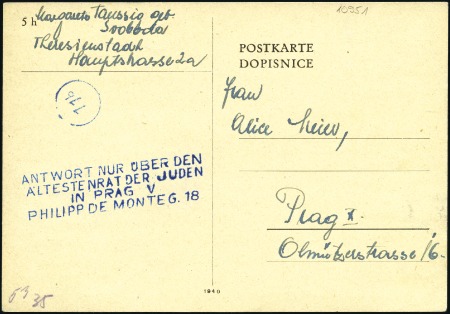 10951
5 h
Margarete Taussig geb.
Svoboda
Theresienstadt
Hauptstrasse 2a
POSTKARTE
DOPISNICE
Frau
Alice Meier,
116
ANTWORT NUR ÜBER DEN
ÄLTESTENRAT DER JUDEN
IN PRAG V
PHILIPP DE MONTE G. 18
Prag X.
Olmützerstrasse 16.
1940